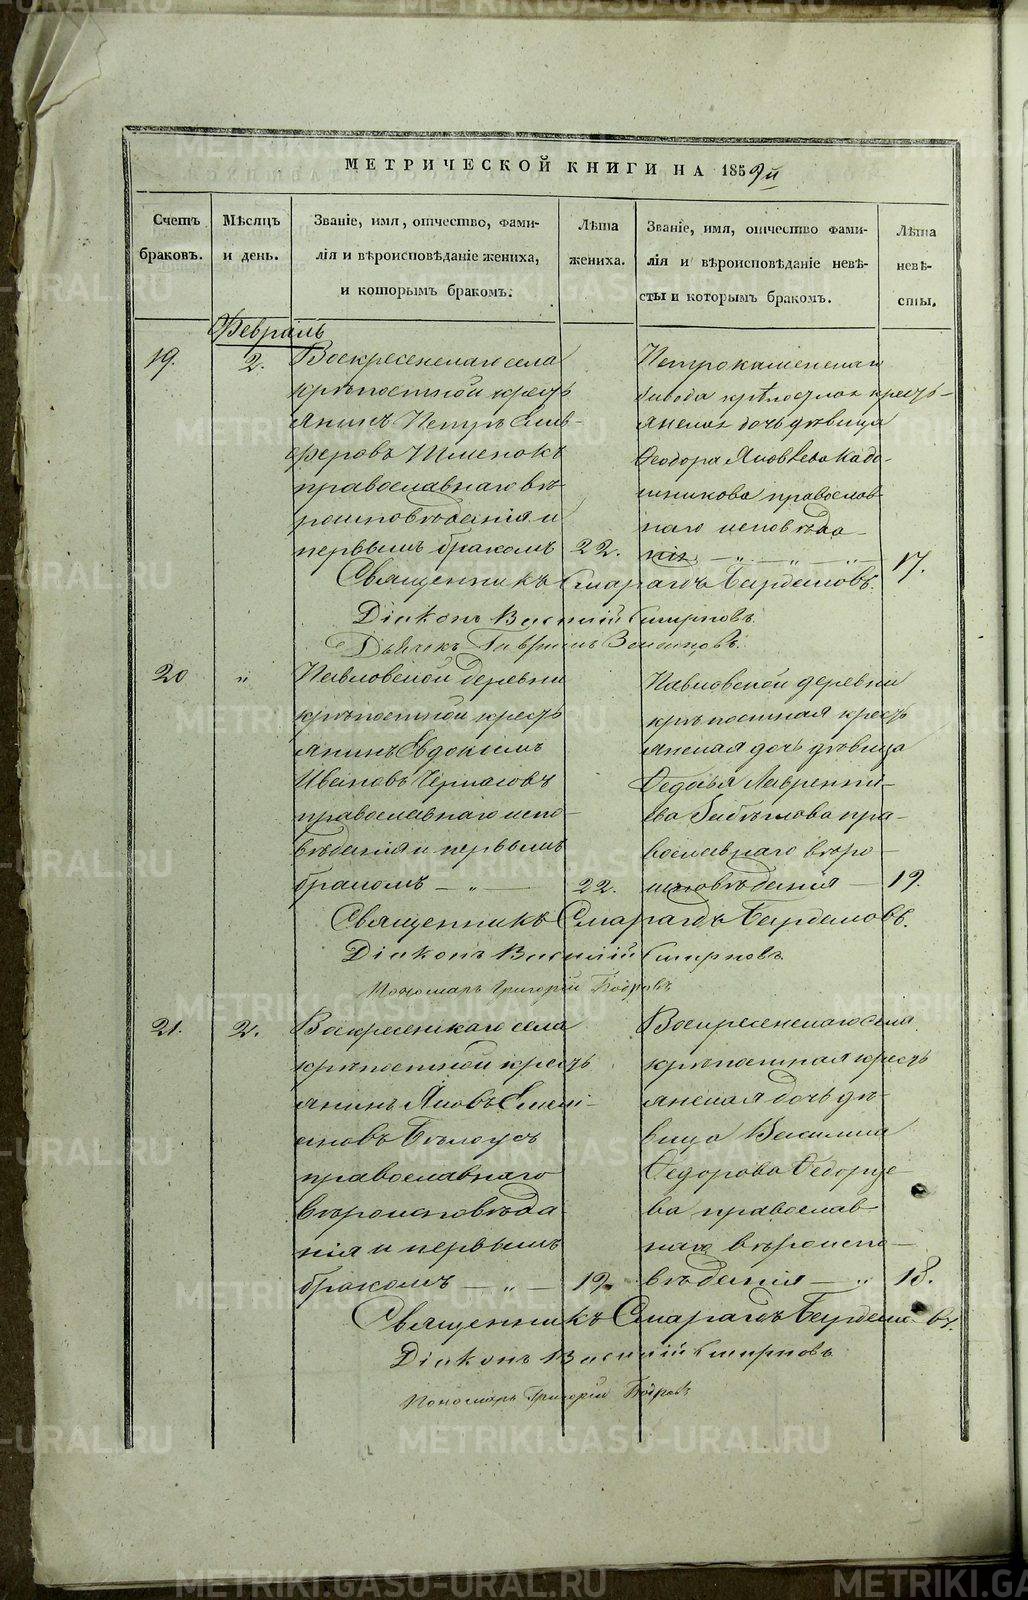 МЕТРИЧЕСКОЙ КНИГИ НА 1859й
Счетъ браковъ.
Мѣсяцъ и день.
Званіе, имя, отчество, фами-
лія и вѣроисповѣданіе жениха,
и которымъ бракомъ.
Лѣта жениха.
Званіе, имя, отчество фами-
лія и вѣроисповѣданіе невѣ-
сты и которымъ бракомъ.
Лѣта невѣ-
сты.
Февраль
19.
2.
Воскресенскаго села
крѣпостной кресть
янинъ Петръ Елев-
феровъ
православнаго вѣ-
роисповѣданія и
первымъ бракомъ
22.
Петрокаменскаго
завода крѣпостная кресть-
янская дочь дѣвица
Феодора Яковлева Кадо-
шникова православ-
наго исповѣда-
нія — „ — „ — „
17.
Священникъ Смарагдъ Бурдековъ.
Діаконъ Василій Смирновъ.
Дьячек Гавриилъ
20
„
Павловской деревни
крѣпостной кресть
янинъ Евдокимъ
Ивановъ Черкасовъ
православнаго испо-
вѣданія и первымъ
бракомъ — „ —
22.
Павловской деревни
крѣпостная кресть
янская дочь дѣвица
Федосья Лавренті-
ева пра-
вославнаго вѣро-
исповѣданія —
19.
Священникъ Смарагдъ Бурдековъ.
Діаконъ Василій Смирновъ
Пономарь Григорій Бобровъ
21.
2.
Воскресенскаго села
крѣпостной кресть
янинъ Яковъ Емелі-
ановъ Бѣлоусъ
православнаго
вѣроисповѣда
нія и первымъ
бракомъ — „ —
19.
Воскресенскаго села
крѣпостная кресть
янская дочь дѣ-
вица Василиса
Федорова Федорце-
ва православ
наго вѣроиспо-
вѣданія — „
18.
Священникъ Смарагдъ Бурдековъ.
Діаконъ Василій Смирновъ
Пономарь Григорій Бобровъ
METRIKI.GASO-URAL.RU